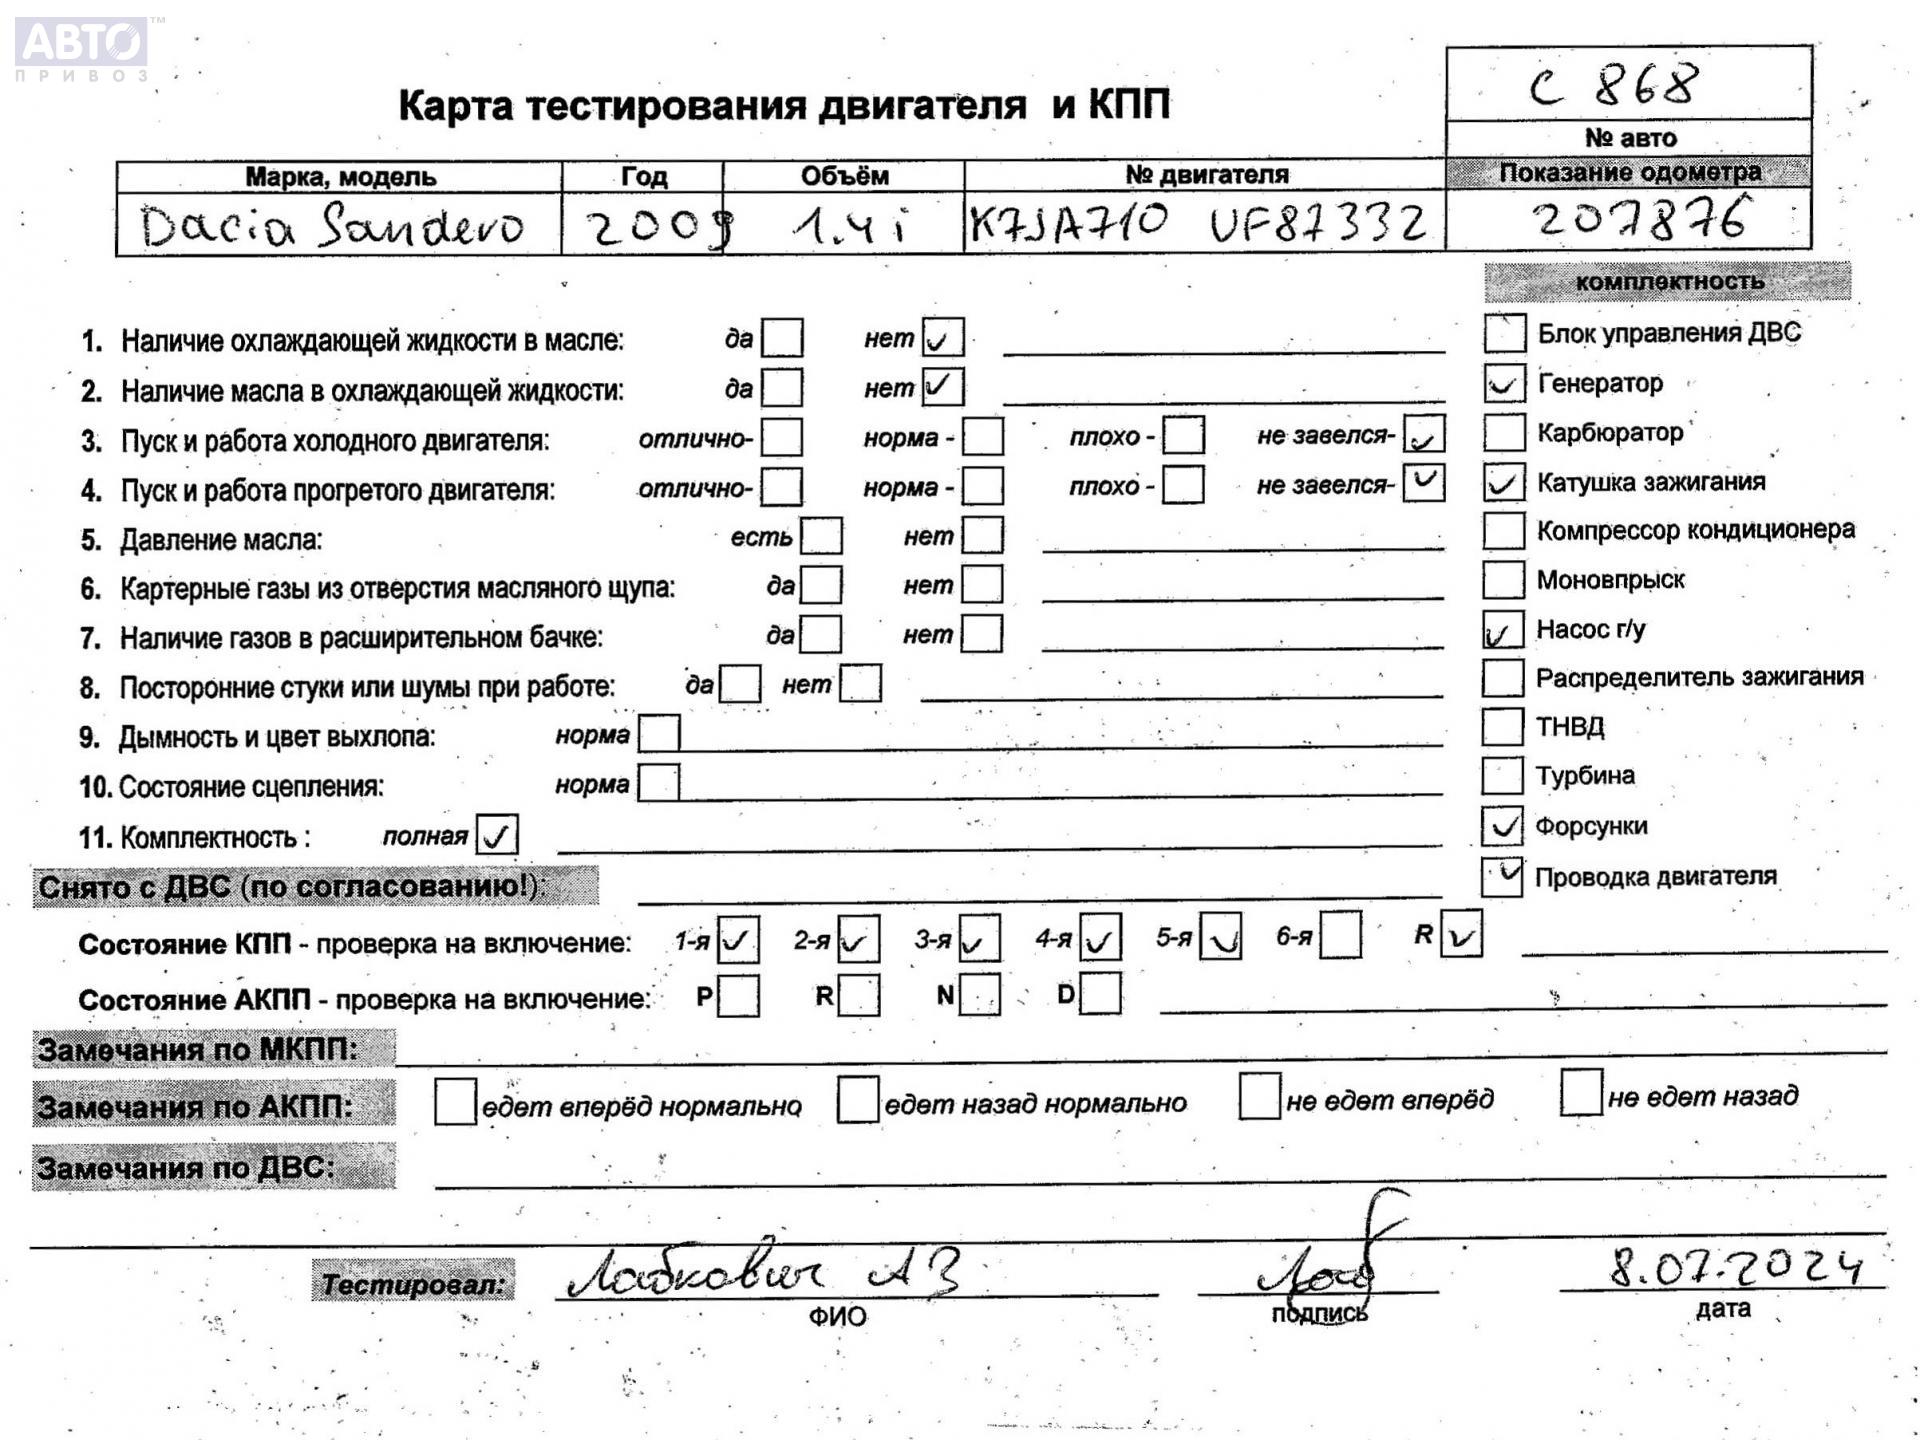 АВТО™
ПРИВОЗ
С 868
Карта тестирования двигателя и КПП
№ авто
Марка, модель Год Объём № двигателя Показание одометра
Dacia Sandero 2009 1.4 i K7JA710 UF87332 207876
комплектность
1. Наличие охлаждающей жидкости в масле: да нет ✓ Блок управления ДВС
2. Наличие масла в охлаждающей жидкости: да нет ✓ ✓ Генератор
3. Пуск и работа холодного двигателя: отлично- норма - плохо - не завелся- ✓ Карбюратор
4. Пуск и работа прогретого двигателя: отлично- норма - плохо - не завелся- ✓ ✓ Катушка зажигания
5. Давление масла: есть нет Компрессор кондиционера
6. Картерные газы из отверстия масляного щупа: да нет Моновпрыск
7. Наличие газов в расширительном бачке: да нет ✓ Насос г/у
8. Посторонние стуки или шумы при работе: да нет Распределитель зажигания
9. Дымность и цвет выхлопа: норма ТНВД
10. Состояние сцепления: норма Турбина
11. Комплектность : полная ✓ ✓ Форсунки
Снято с ДВС (по согласованию!): ✓ Проводка двигателя
Состояние КПП - проверка на включение: 1-я ✓ 2-я ✓ 3-я ✓ 4-я ✓ 5-я ✓ 6-я R ✓
Состояние АКПП - проверка на включение: P R N D
Замечания по МКПП:
Замечания по АКПП: едет вперёд нормально едет назад нормально не едет вперёд не едет назад
Замечания по ДВС:
Тестировал: Лабкович А З 8.07.2024
ФИО подпись дата